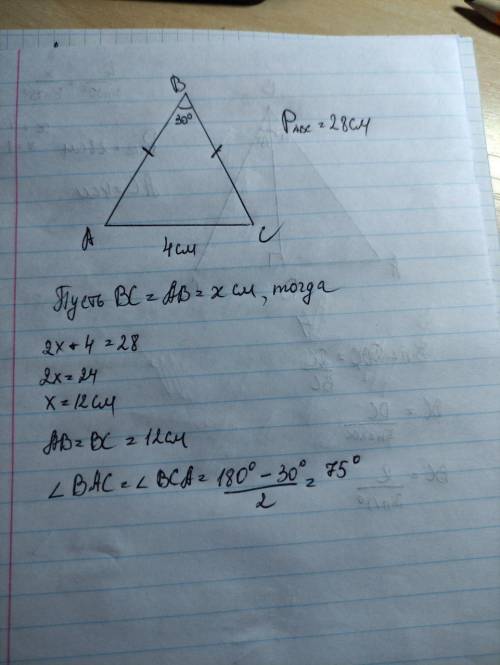 B
30°
P ABC = 28см
A
C
4см
Пусть BC = AB = x см, тогда
2x + 4 = 28
2x = 24
x = 12см
AB = BC = 12см
∠BAC = ∠BCA = 180° - 30° / 2 = 75°